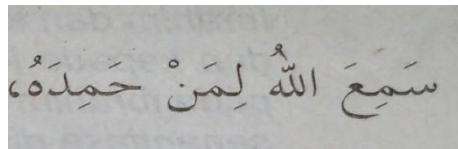 سَمِعَ اللّٰهُ لِمَنْ حَمِدَهُ،